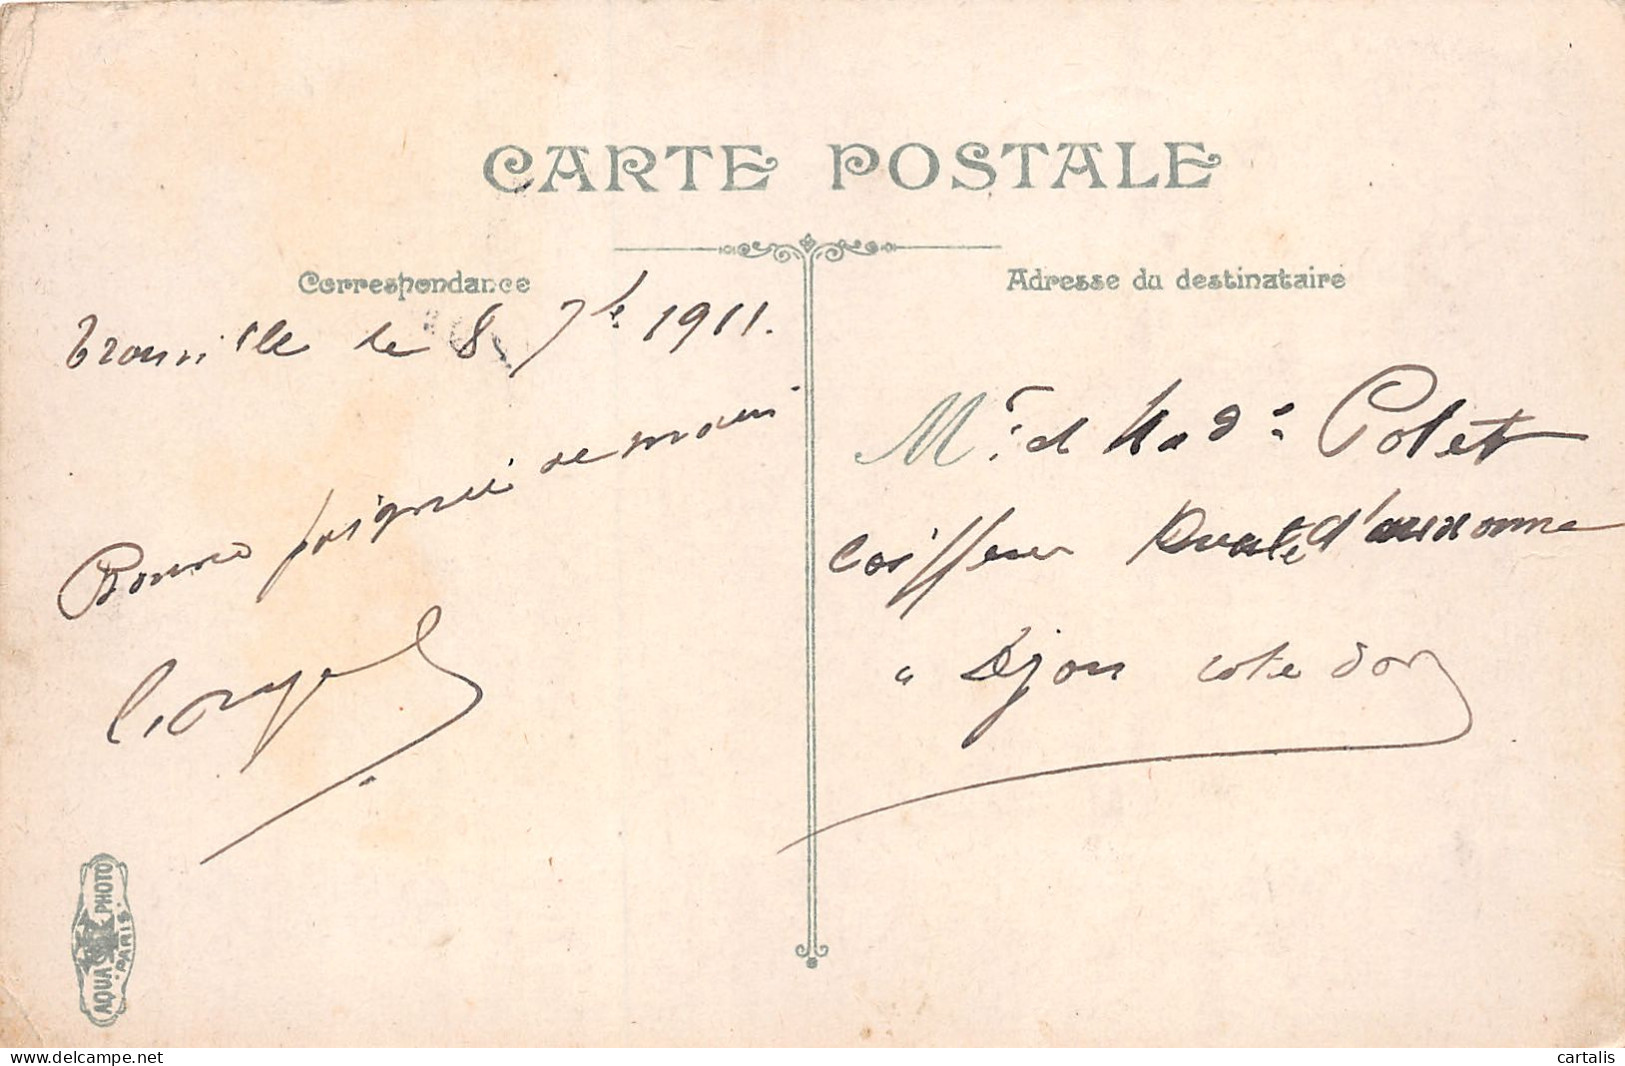 CARTE POSTALE
Correspondance
Trouville le 8 7bre 1911.
Bonne poignée de main
Adresse du destinataire
Mr. et Made Polet
Coiffeur Route d'auxonne
a Dijon cote dor
AQUA PHOTO
PARIS
delcampe.net
cartalis